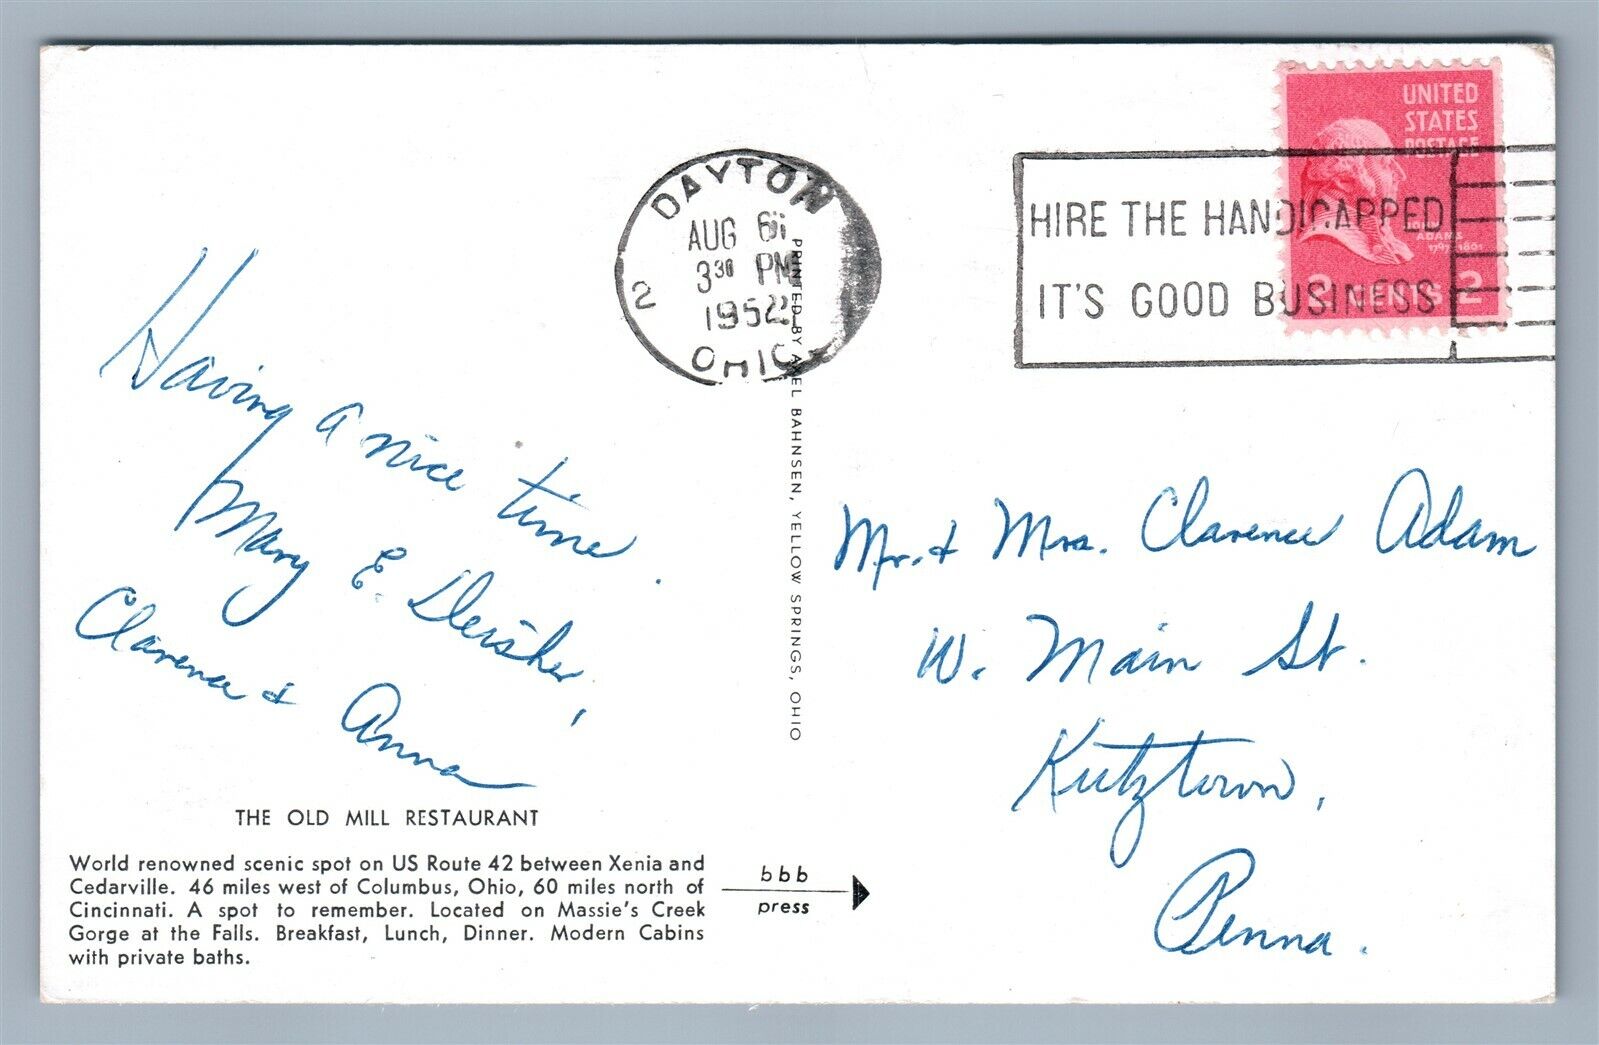 UNITED
STATES
POSTAGE
ADAMS
1797 1801
2 CENTS 2
DAYTON
AUG 6
3 30 PM
1952
2
OHIO
HIRE THE HANDICAPPED
IT'S GOOD BUSINESS
Having a nice time.
Mary E. Deisher,
Clarence & Anna
THE OLD MILL RESTAURANT
World renowned scenic spot on US Route 42 between Xenia and
Cedarville. 46 miles west of Columbus, Ohio, 60 miles north of
Cincinnati. A spot to remember. Located on Massie's Creek
Gorge at the Falls. Breakfast, Lunch, Dinner. Modern Cabins
with private baths.
PRINTED BY AXEL BAHNSEN, YELLOW SPRINGS, OHIO
bbb
press
Mr. & Mrs. Clarence Adam
W. Main St.
Kutztown,
Penna.